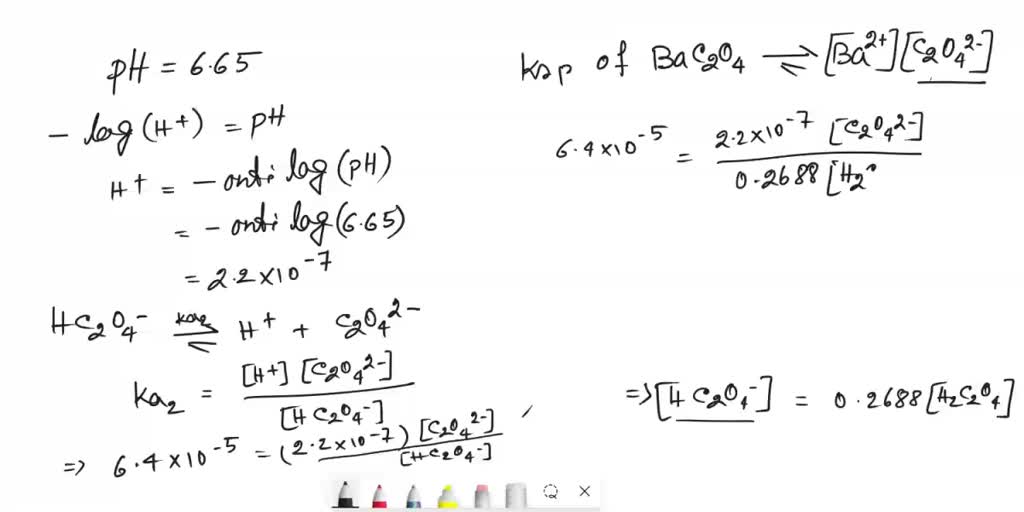 pH = 6.65
- log(H+) = pH
H+ = - onti log(pH)
= - onti log(6.65)
= 2.2×10^-7
HC2O4^- ⇌ ka2 H+ + C2O4^2-
ka2 = [H+] [C2O4^2-] / [HC2O4^-]
=> 6.4×10^-5 = (2.2×10^-7) [C2O4^2-] / [HC2O4^-]
ksp of BaC2O4 ⇌ [Ba^2+][C2O4^2-]
6.4×10^-5 = 2.2×10^-7 [C2O4^2-] / 0.2688 [H2
=> [HC2O4^-] = 0.2688 [H2C2O4]